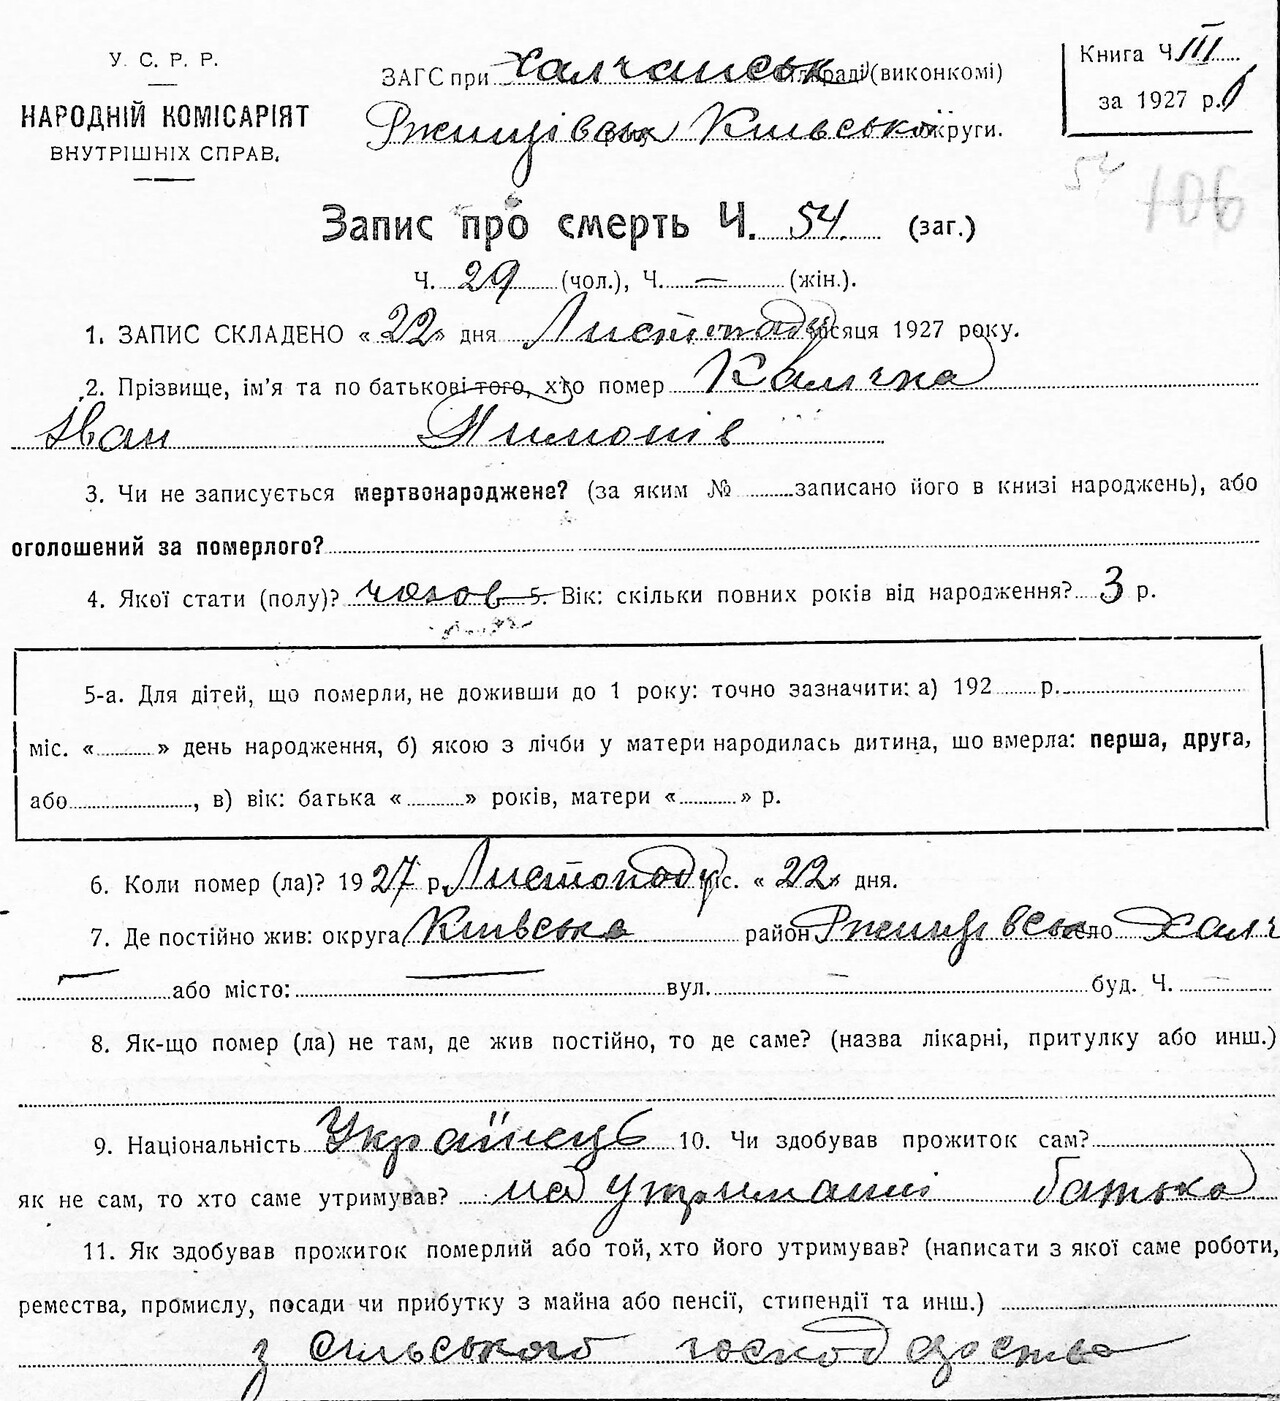 У. С. Р. Р.
НАРОДНІЙ КОМІСАРІЯТ
ВНУТРІШНІХ СПРАВ.
ЗАГС при Халчанськ раді (виконкомі)
Ржищівськ Київської округи.
Книга Ч. III
за 1927 р.
54 106
Запис про смерть Ч. 54 (заг.)
Ч. 29 (чол.), Ч. — (жін.).
1. ЗАПИС СКЛАДЕНО «22» дня Листопаду місяця 1927 року.
2. Прізвище, ім'я та по батькові того, хто помер Калічка
Іван Тимошів
3. Чи не записується мертвонароджене? (за яким № записано його в книзі народжень), або
оголошений за померлого?
4. Якої стати (полу)? чолов 5. Вік: скільки повних років від народження? 3 р.
5-а. Для дітей, що померли, не доживши до 1 року: точно зазначити: а) 192 р.
міс. « » день народження, б) якою з лічби у матери народилась дитина, що вмерла: перша, друга,
або , в) вік: батька « » років, матери « » р.
6. Коли помер (ла)? 1927 р. Листопаду міс. «22» дня.
7. Де постійно жив: округа Київська район Ржищівськ село Халч
— або місто: — вул. — буд. Ч. —
8. Як-що помер (ла) не там, де жив постійно, то де саме? (назва лікарні, притулку або инш.)
9. Національність Українець 10. Чи здобував прожиток сам?
як не сам, то хто саме утримував? на утриманні батька
11. Як здобував прожиток померлий або той, хто його утримував? (написати з якої саме роботи,
ремества, промислу, посади чи прибутку з майна або пенсії, стипендії та инш.)
з сільського господарства